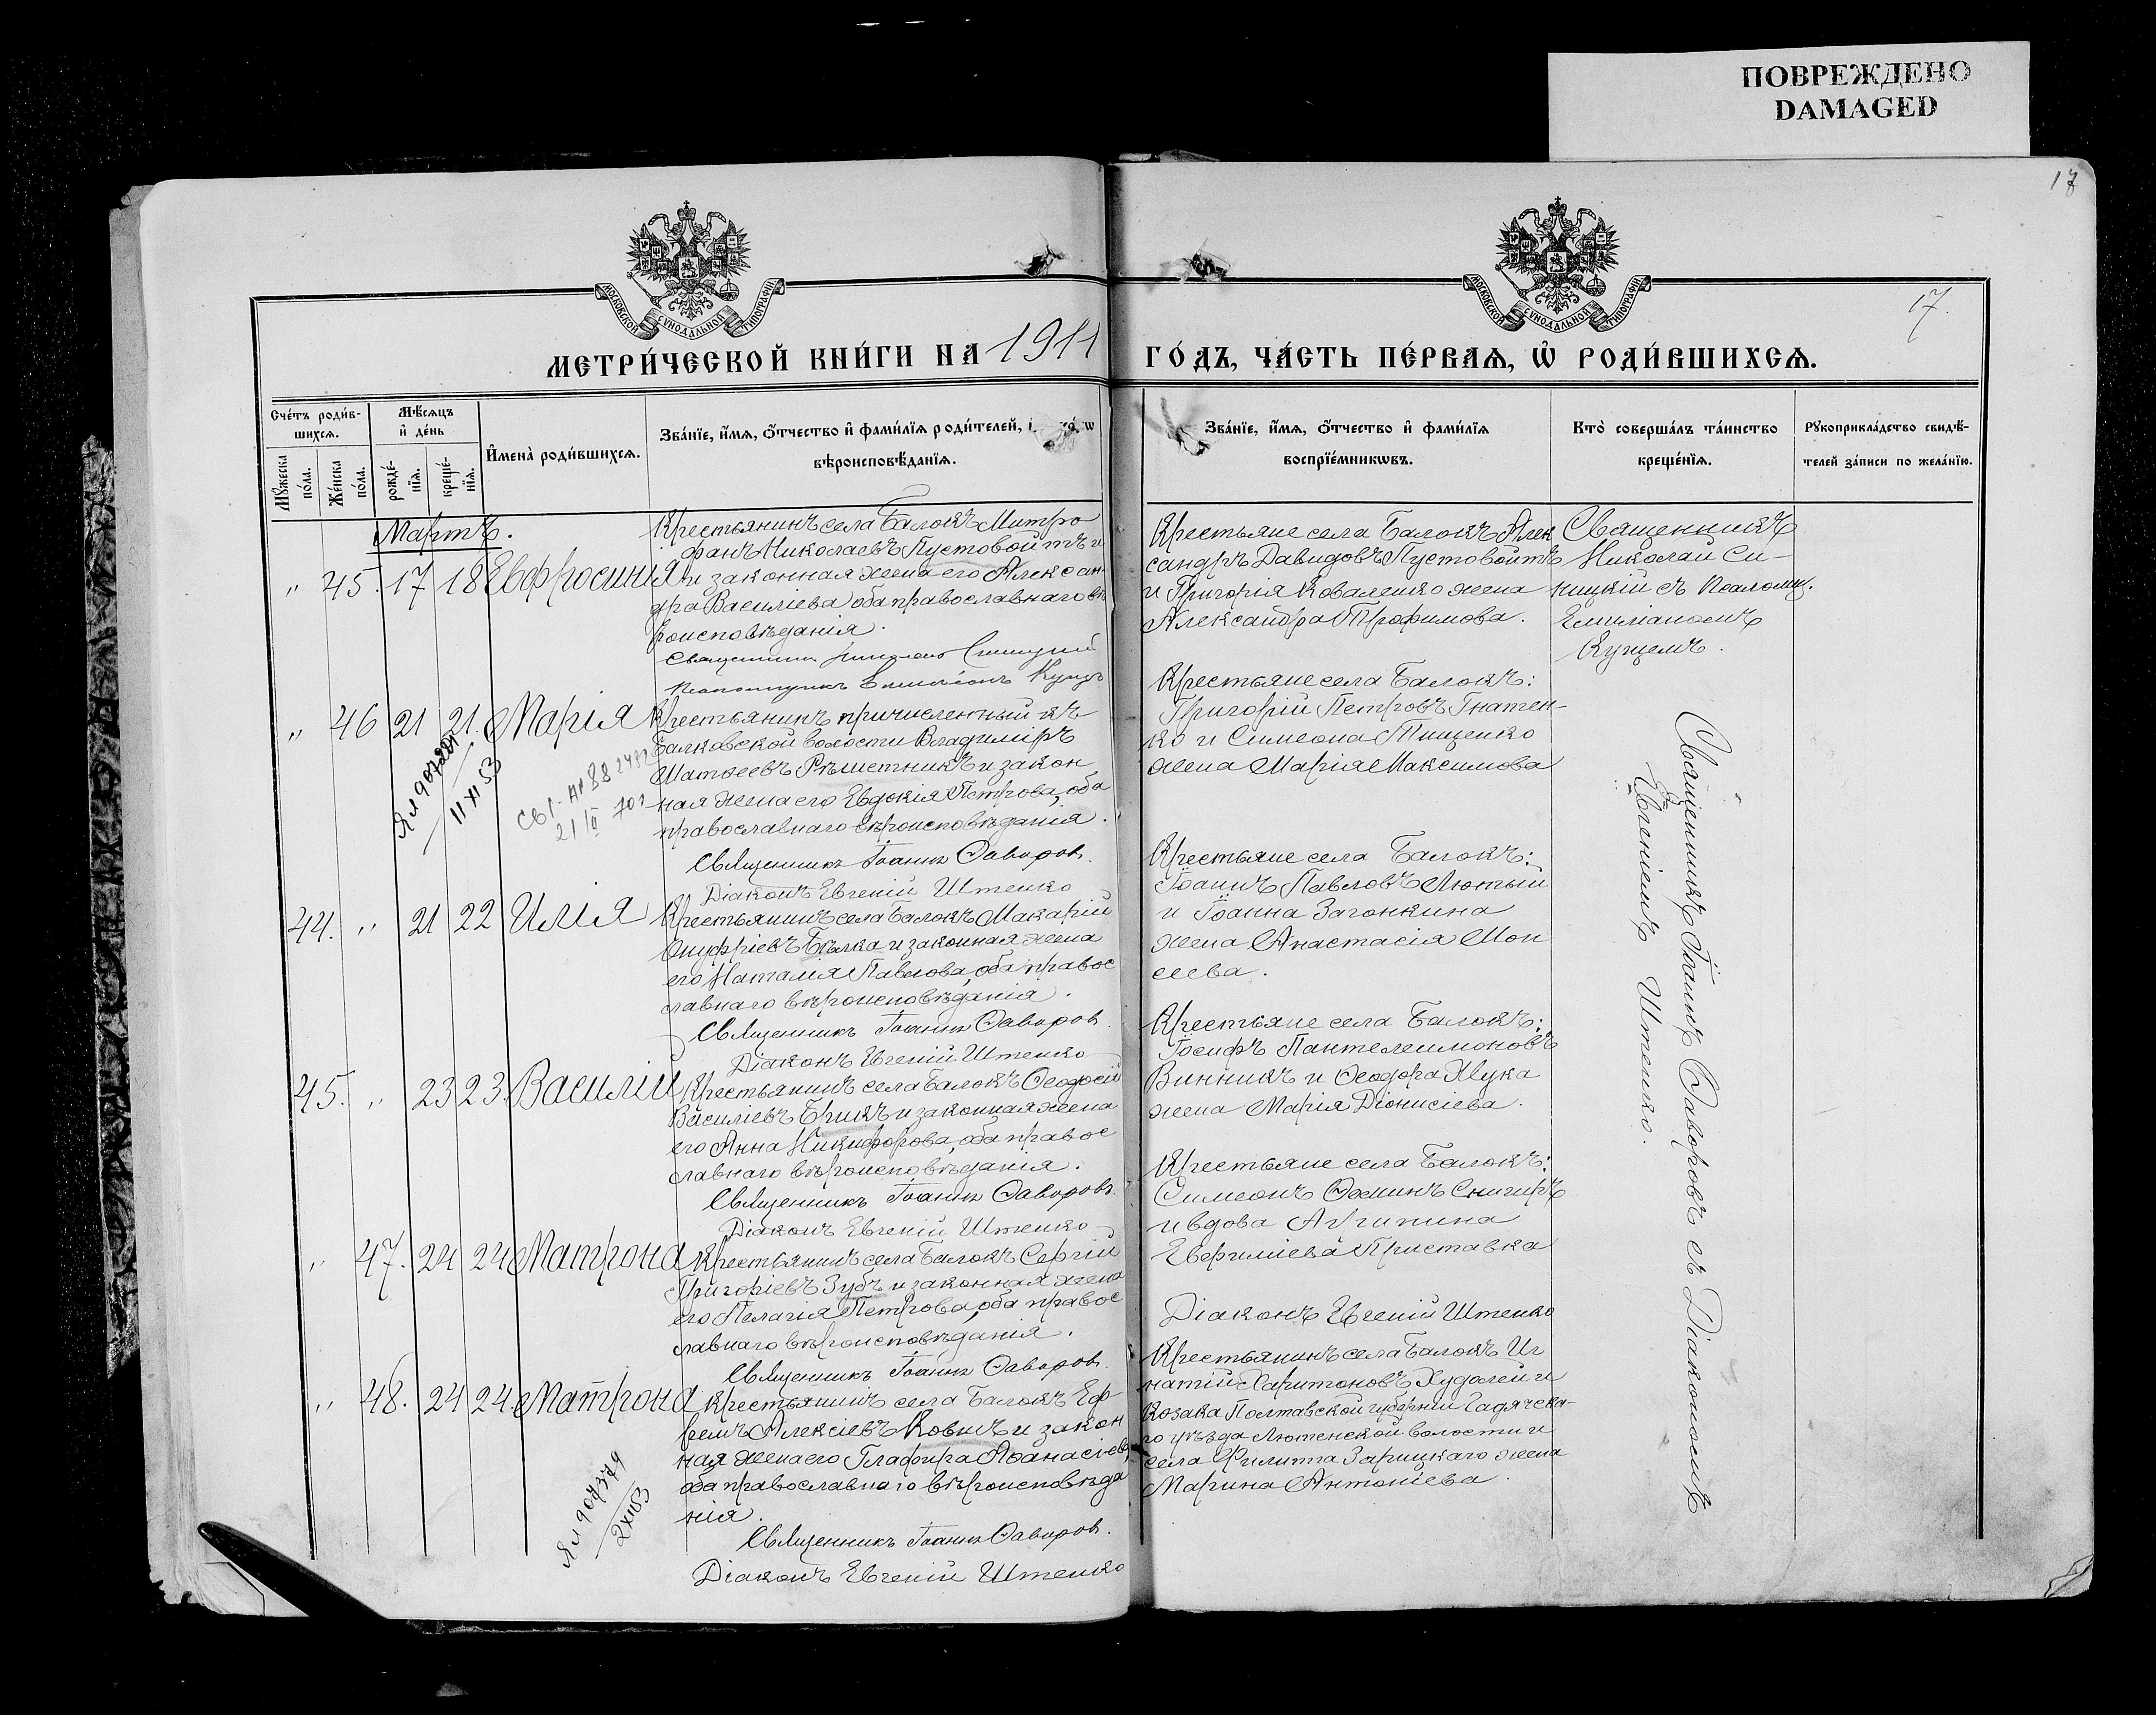 ПОВРЕЖДЕНО
DAMAGED
17
17.
МОСКОВСКОЙ СѴНОДАЛЬНОЙ ТИПОГРАФІИ
МОСКОВСКОЙ СѴНОДАЛЬНОЙ ТИПОГРАФІИ
МЕТРИ́ЧЕСКОЙ КНИ́ГИ НА 1911
ГО́ДЪ, ЧА́СТЬ ПЕ́РВАѦ, Ѡ҆ РОДИ́ВШИХСѦ.
Сче́тъ роди́в-
шихсѧ.
Мѣ́сѧцъ
и҆ де́нь
Мꙋ́жеска
по́ла.
Же́нска
по́ла.
рожде́-
нїѧ.
креще́-
нїѧ.
И҆мена̀ роди́вшихсѧ.
Зва́нїе, и҆́мѧ, ѻ҆́тчество и҆ фами́лїѧ роди́телей,
вѣроисповѣ́данїѧ.
Зва́нїе, и҆́мѧ, ѻ҆́тчество и҆ фами́лїѧ
воспрїе́мникѡвъ.
Кто̀ соверша́лъ та́инство
креще́нїѧ.
Рꙋкоприкла́дство свидѣ́-
телей за́писи по жела́нїю.
Мартъ.
" 45. 17 18 Евфросинія
Крестьянинъ села Балокъ Митро
фанъ Николаевъ Пустовойтъ и
и законная жена его Алексан-
дра Василіева оба православнаго вѣ
роисповѣданія.
Священникъ Николай Синицкій
Псаломщикъ Емиліанъ Кущъ
Крестьяне села Балокъ Алек
сандръ Давидовъ Пустовойтъ
и Григорія Коваленко жена
Александра Трофимова.
Священникъ
Николай Си-
ницкій съ Псаломщ.
Емиліаномъ
Кущемъ.
" 46 21 21. Марія
Крестьянинъ причисленный къ
Балковской волости Владиміръ
Матѳеевъ Рѣшетникъ и закон
ная жена его Евдокія Петрова, оба
православнаго вѣроисповѣданія.
Священникъ Іоаннъ Ѳаворовъ.
Діаконъ Евгеній Штенко
11 XI 53
Крестьяне села Балокъ:
Григорій Петровъ Гнатен-
ко и Симеона Тищенко
жена Марія Максимова
44. " 21 22 Илія
Крестьянинъ села Балокъ Макарій
Онуфріевъ Бѣлка и законная жена
его Наталія Павлова, оба правос
лавнаго вѣроисповѣданія.
Священникъ Іоаннъ Ѳаворовъ.
Діаконъ Евгеній Штенко
Крестьяне села Балокъ:
Іоаннъ Павловъ Лютый
и Іоанна Загонкина
жена Анастасія Мои
сеева.
45. " 23 23. Василій
Крестьянинъ села Балокъ Ѳеодосій
Василіевъ Брикъ и законная жена
его Анна Никифорова, оба правос
лавнаго вѣроисповѣданія.
Священникъ Іоаннъ Ѳаворовъ.
Діаконъ Евгеній Штенко
Крестьяне села Балокъ:
Іосифъ Пантелеимоновъ
Винникъ и Ѳеодора Жука
жена Марія Діонисіева.
" 47. 24 24 Матрона
Крестьянинъ села Балокъ Сергій
Григоріевъ Зубъ и законная жена
его Пелагія Петрова, оба правос
лавнаго вѣроисповѣданія.
Священникъ Іоаннъ Ѳаворовъ.
Крестьяне села Балокъ:
Симеонъ Ѳоминъ Снигиръ
и вдова Агрипина
Евфиміева Приставка
Діаконъ Евгеній Штенко
" 48. 24 24. Матрона
Крестьянинъ села Балокъ Еф
ремъ Алексіевъ Ковикъ и закон
ная жена его Глафира Аѳанасіева,
оба православнаго вѣроисповѣда
нія.
Священникъ Іоаннъ Ѳаворовъ.
Діаконъ Евгеній Штенко
Крестьянинъ села Балокъ Иг
натій Харитоновъ Худолей и
козака Полтавской губерніи Гадячска-
го уѣзда Лютенской волости и
села Филиппа Зарицкаго жена
Марина Антоніева.
Священникъ Іоаннъ Ѳаворовъ съ Діакономъ
Евгеніемъ Штенко.